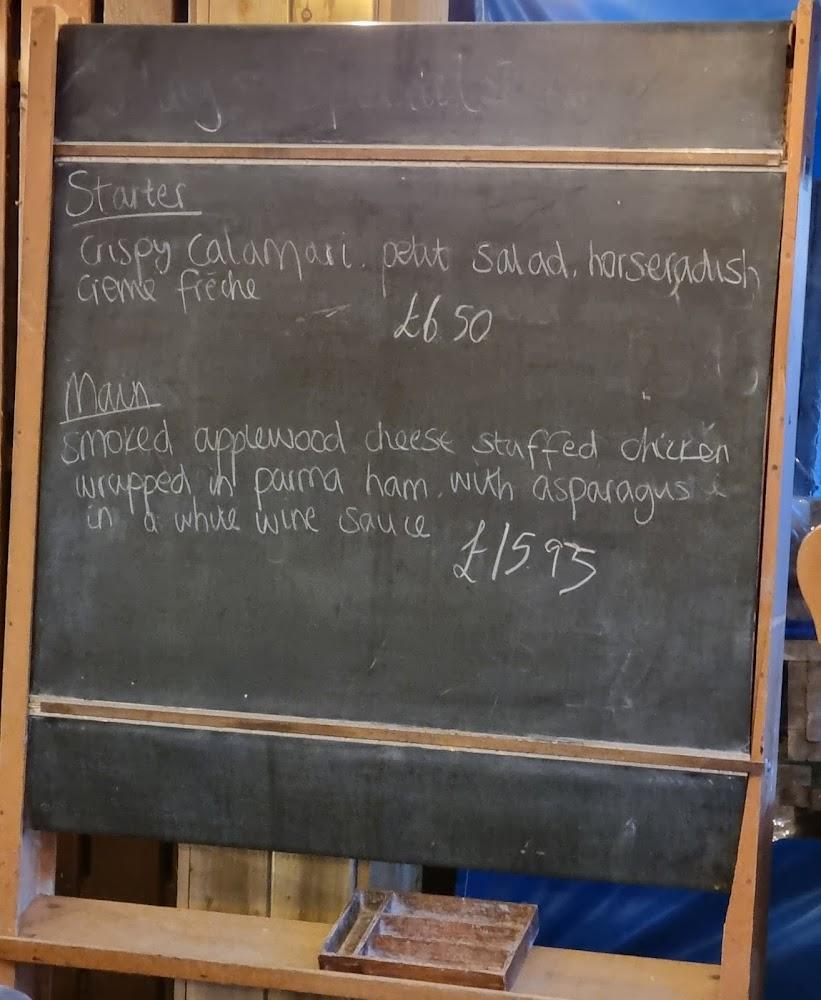 Starter
Crispy Calamari. petit salad. horseradish
creme frêche
£6 50
Main
smoked applewood cheese stuffed chicken
wrapped in parma ham. with asparagus
in a white wine sauce
£15.95